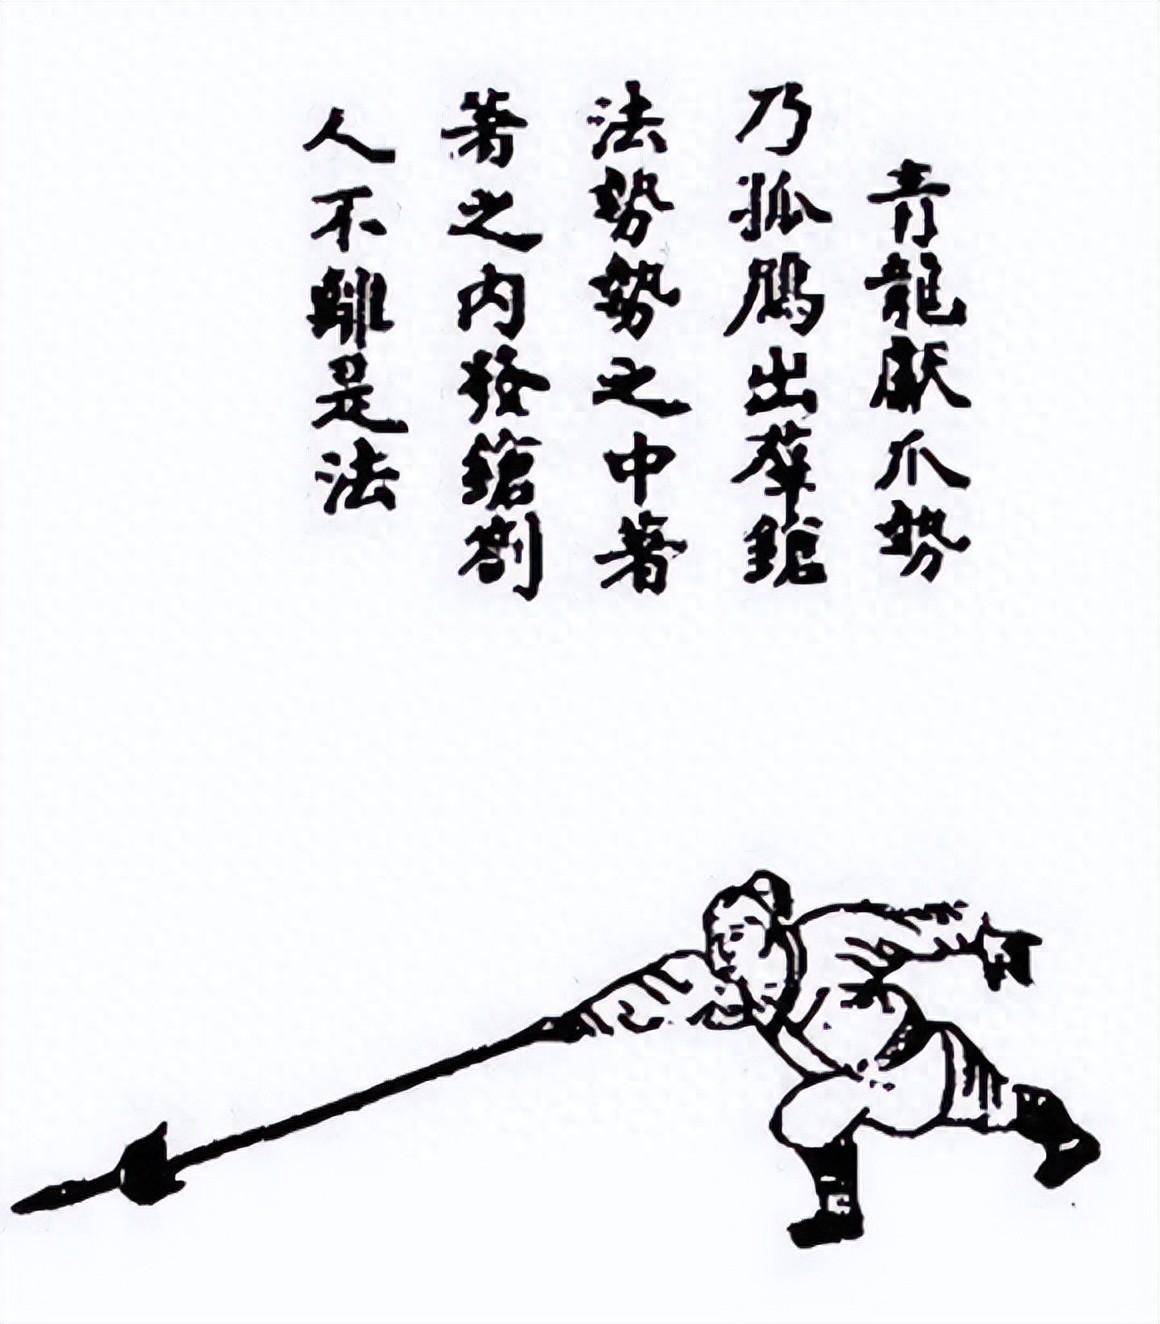 青龍獻爪勢
乃孤鴈出羣鎗
法勢勢之中著
著之內發鎗劄
人不離是法